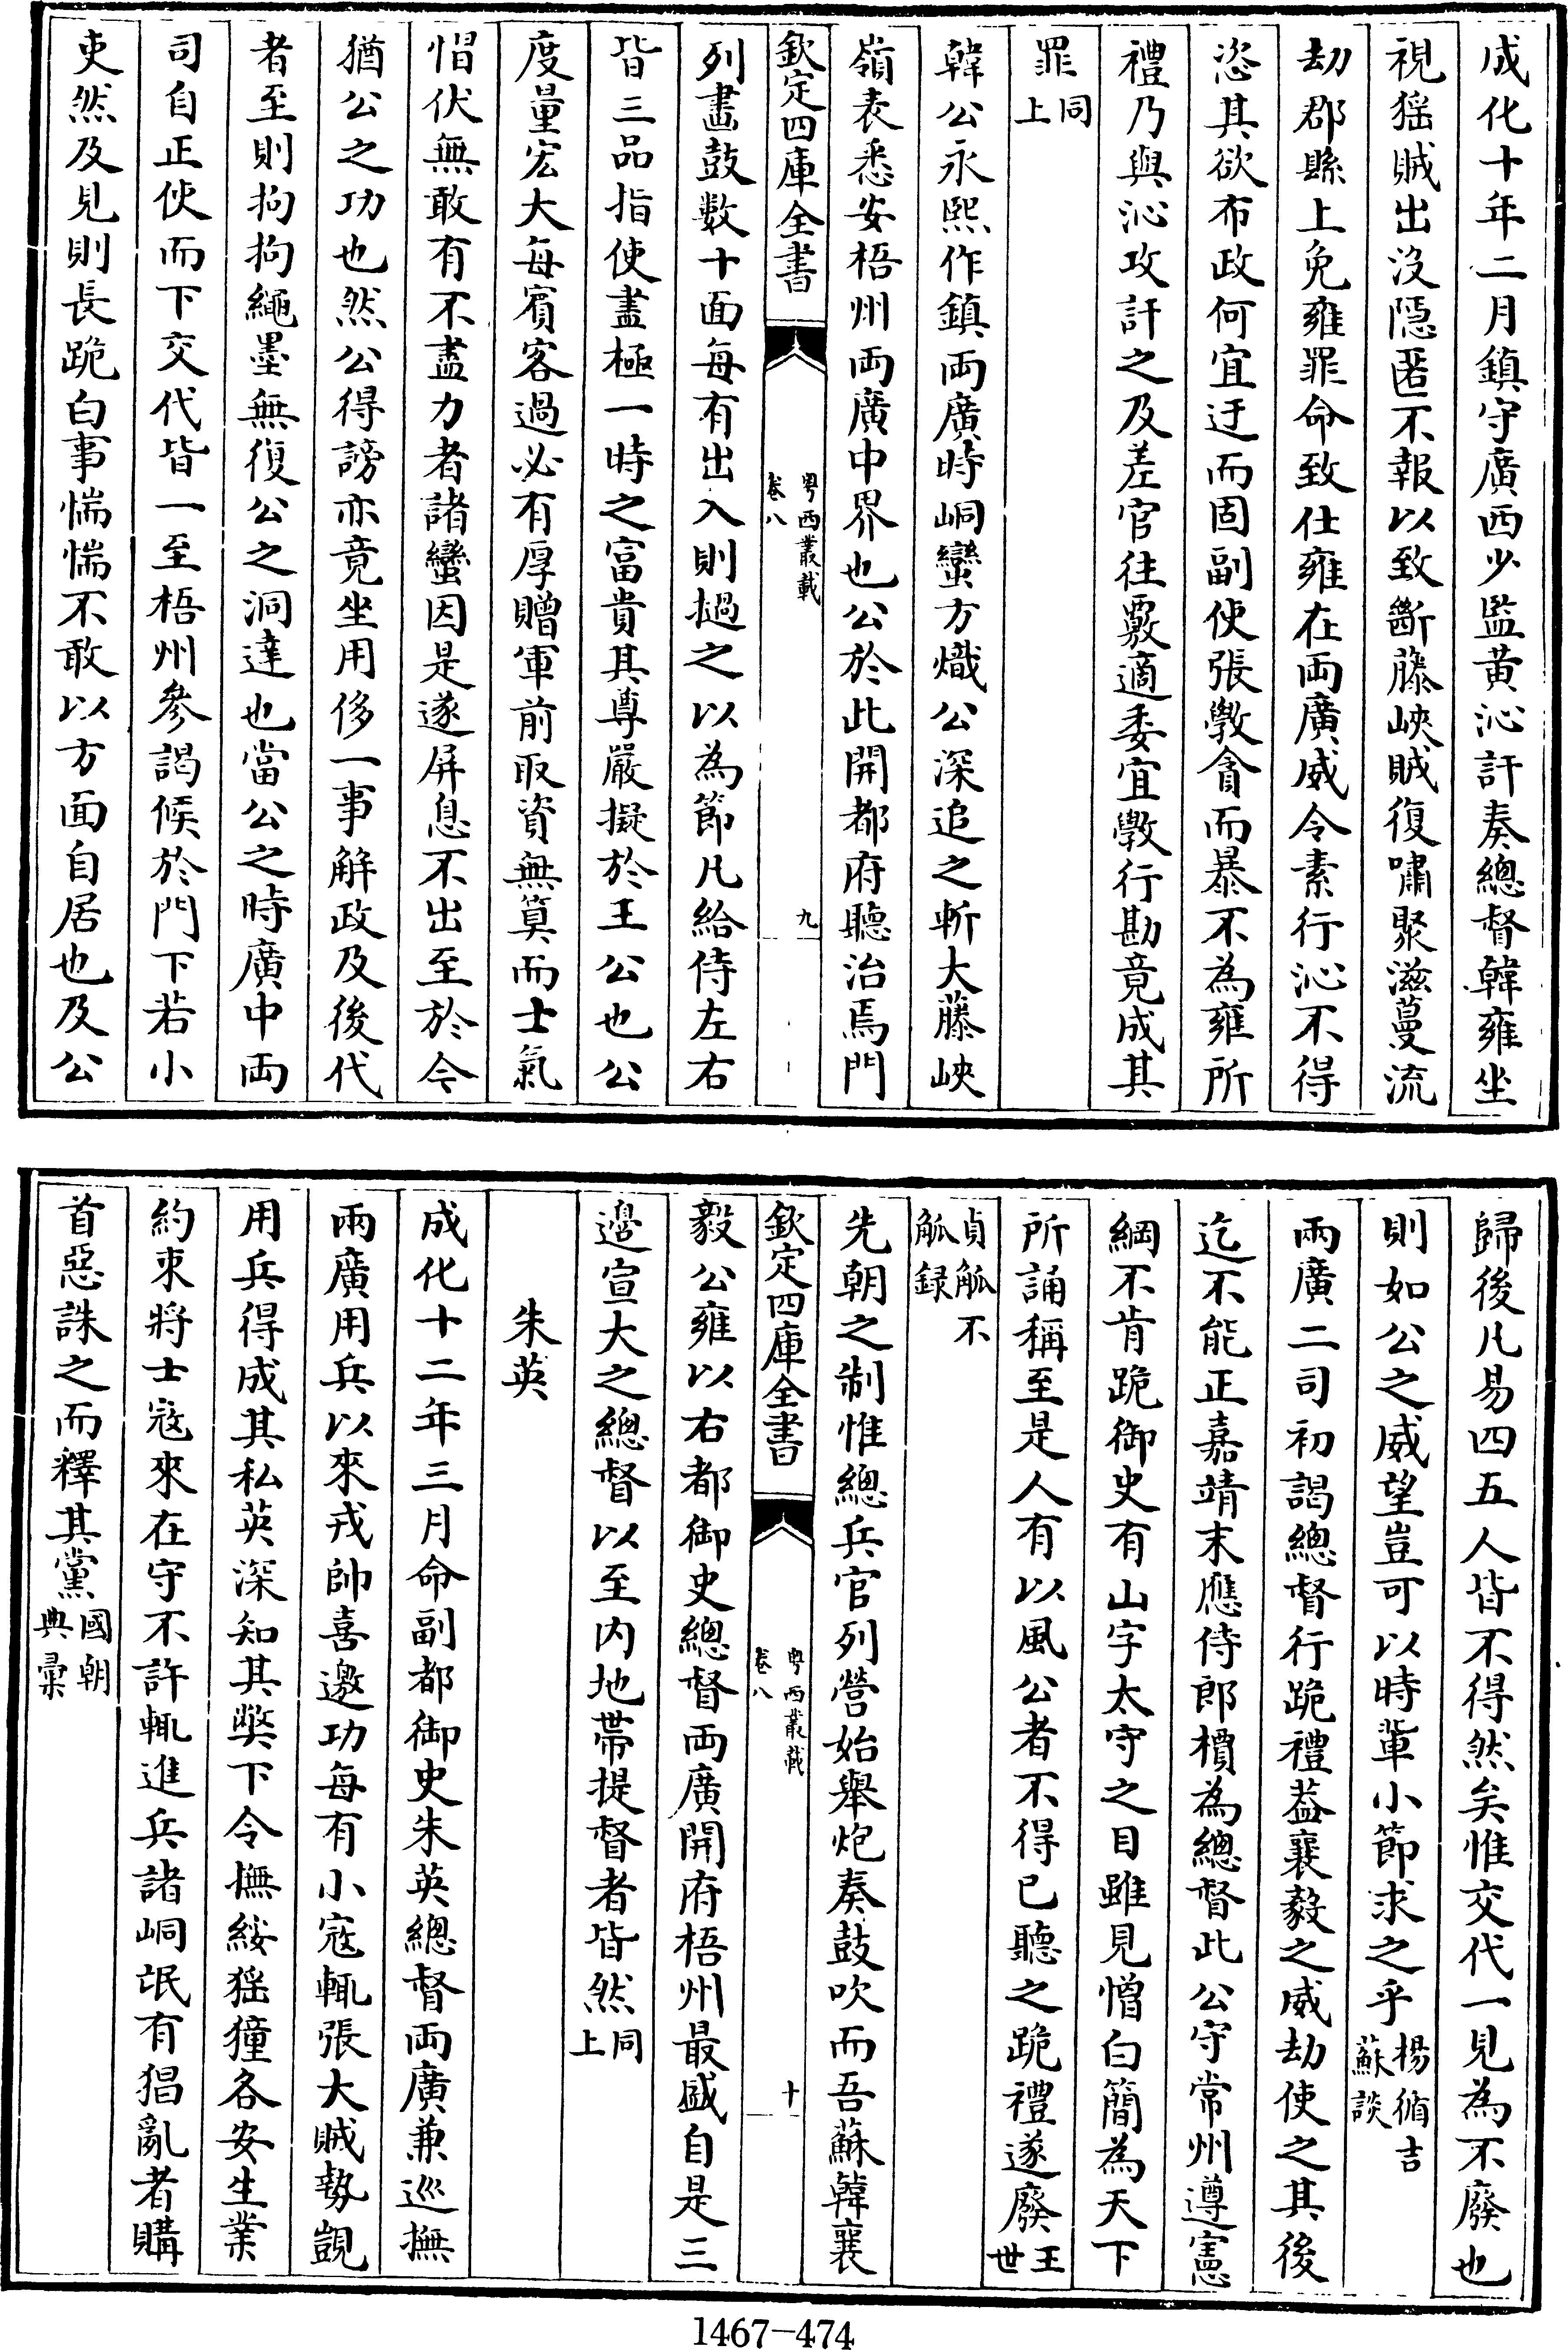 成化十年二月鎮守廣西少監黄沁訐奏總督韓雍坐
視猺賊出沒隱匿不報以致斷藤峽賊復嘯聚滋蔓流
劫郡縣上免雍罪命致仕雍在兩廣威令素行沁不得
恣其欲布政何宜迂而固副使張斆貪而暴不為雍所
禮乃與沁攻訐之及差官往覈適委宜斆行勘竟成其
罪同上
韓公永熙作鎮兩廣時峒蠻方熾公深追之斬大藤峽
嶺表悉安梧州兩廣中界也公於此開都府聽治焉門
欽定四庫全書
粤西叢載
卷八
九
列畫鼓數十面每有出入則撾之以為節凡給侍左右
皆三品指使盡極一時之富貴其尊嚴擬於王公也公
度量宏大每賓客過必有厚贈軍前取資無算而士氣
慴伏無敢有不盡力者諸蠻因是遂屏息不出至於今
猶公之功也然公得謗亦竟坐用侈一事解政及後代
者至則拘拘繩墨無復公之洞達也當公之時廣中兩
司自正使而下交代皆一至梧州參謁候於門下若小
吏然及見則長跪白事惴惴不敢以方面自居也及公
歸後凡易四五人皆不得然矣惟交代一見為不廢也
則如公之威望豈可以時輩小節求之乎楊循吉
蘇談
兩廣二司初謁總督行跪禮葢襄毅之威劫使之其後
迄不能正嘉靖末應侍郎檟為總督此公守常州遵憲
綱不肯跪御史有山字太守之目雖見憎白簡為天下
所誦稱至是人有以風公者不得已聽之跪禮遂廢王世
貞觚不
觚録
先朝之制惟總兵官列營始舉炮奏鼓吹而吾蘇韓襄
欽定四庫全書
粤西叢載
卷八
十
毅公雍以右都御史總督兩廣開府梧州最盛自是三
邊宣大之總督以至内地帶提督者皆然同上
朱英
成化十二年三月命副都御史朱英總督兩廣兼巡撫
兩廣用兵以來戎帥喜邀功每有小寇輒張大賊勢覬
用兵得成其私英深知其弊下令撫綏猺獞各安生業
約束將士寇來在守不許輒進兵諸峒氓有猖亂者購
首惡誅之而釋其黨國朝
典彙
1467-474